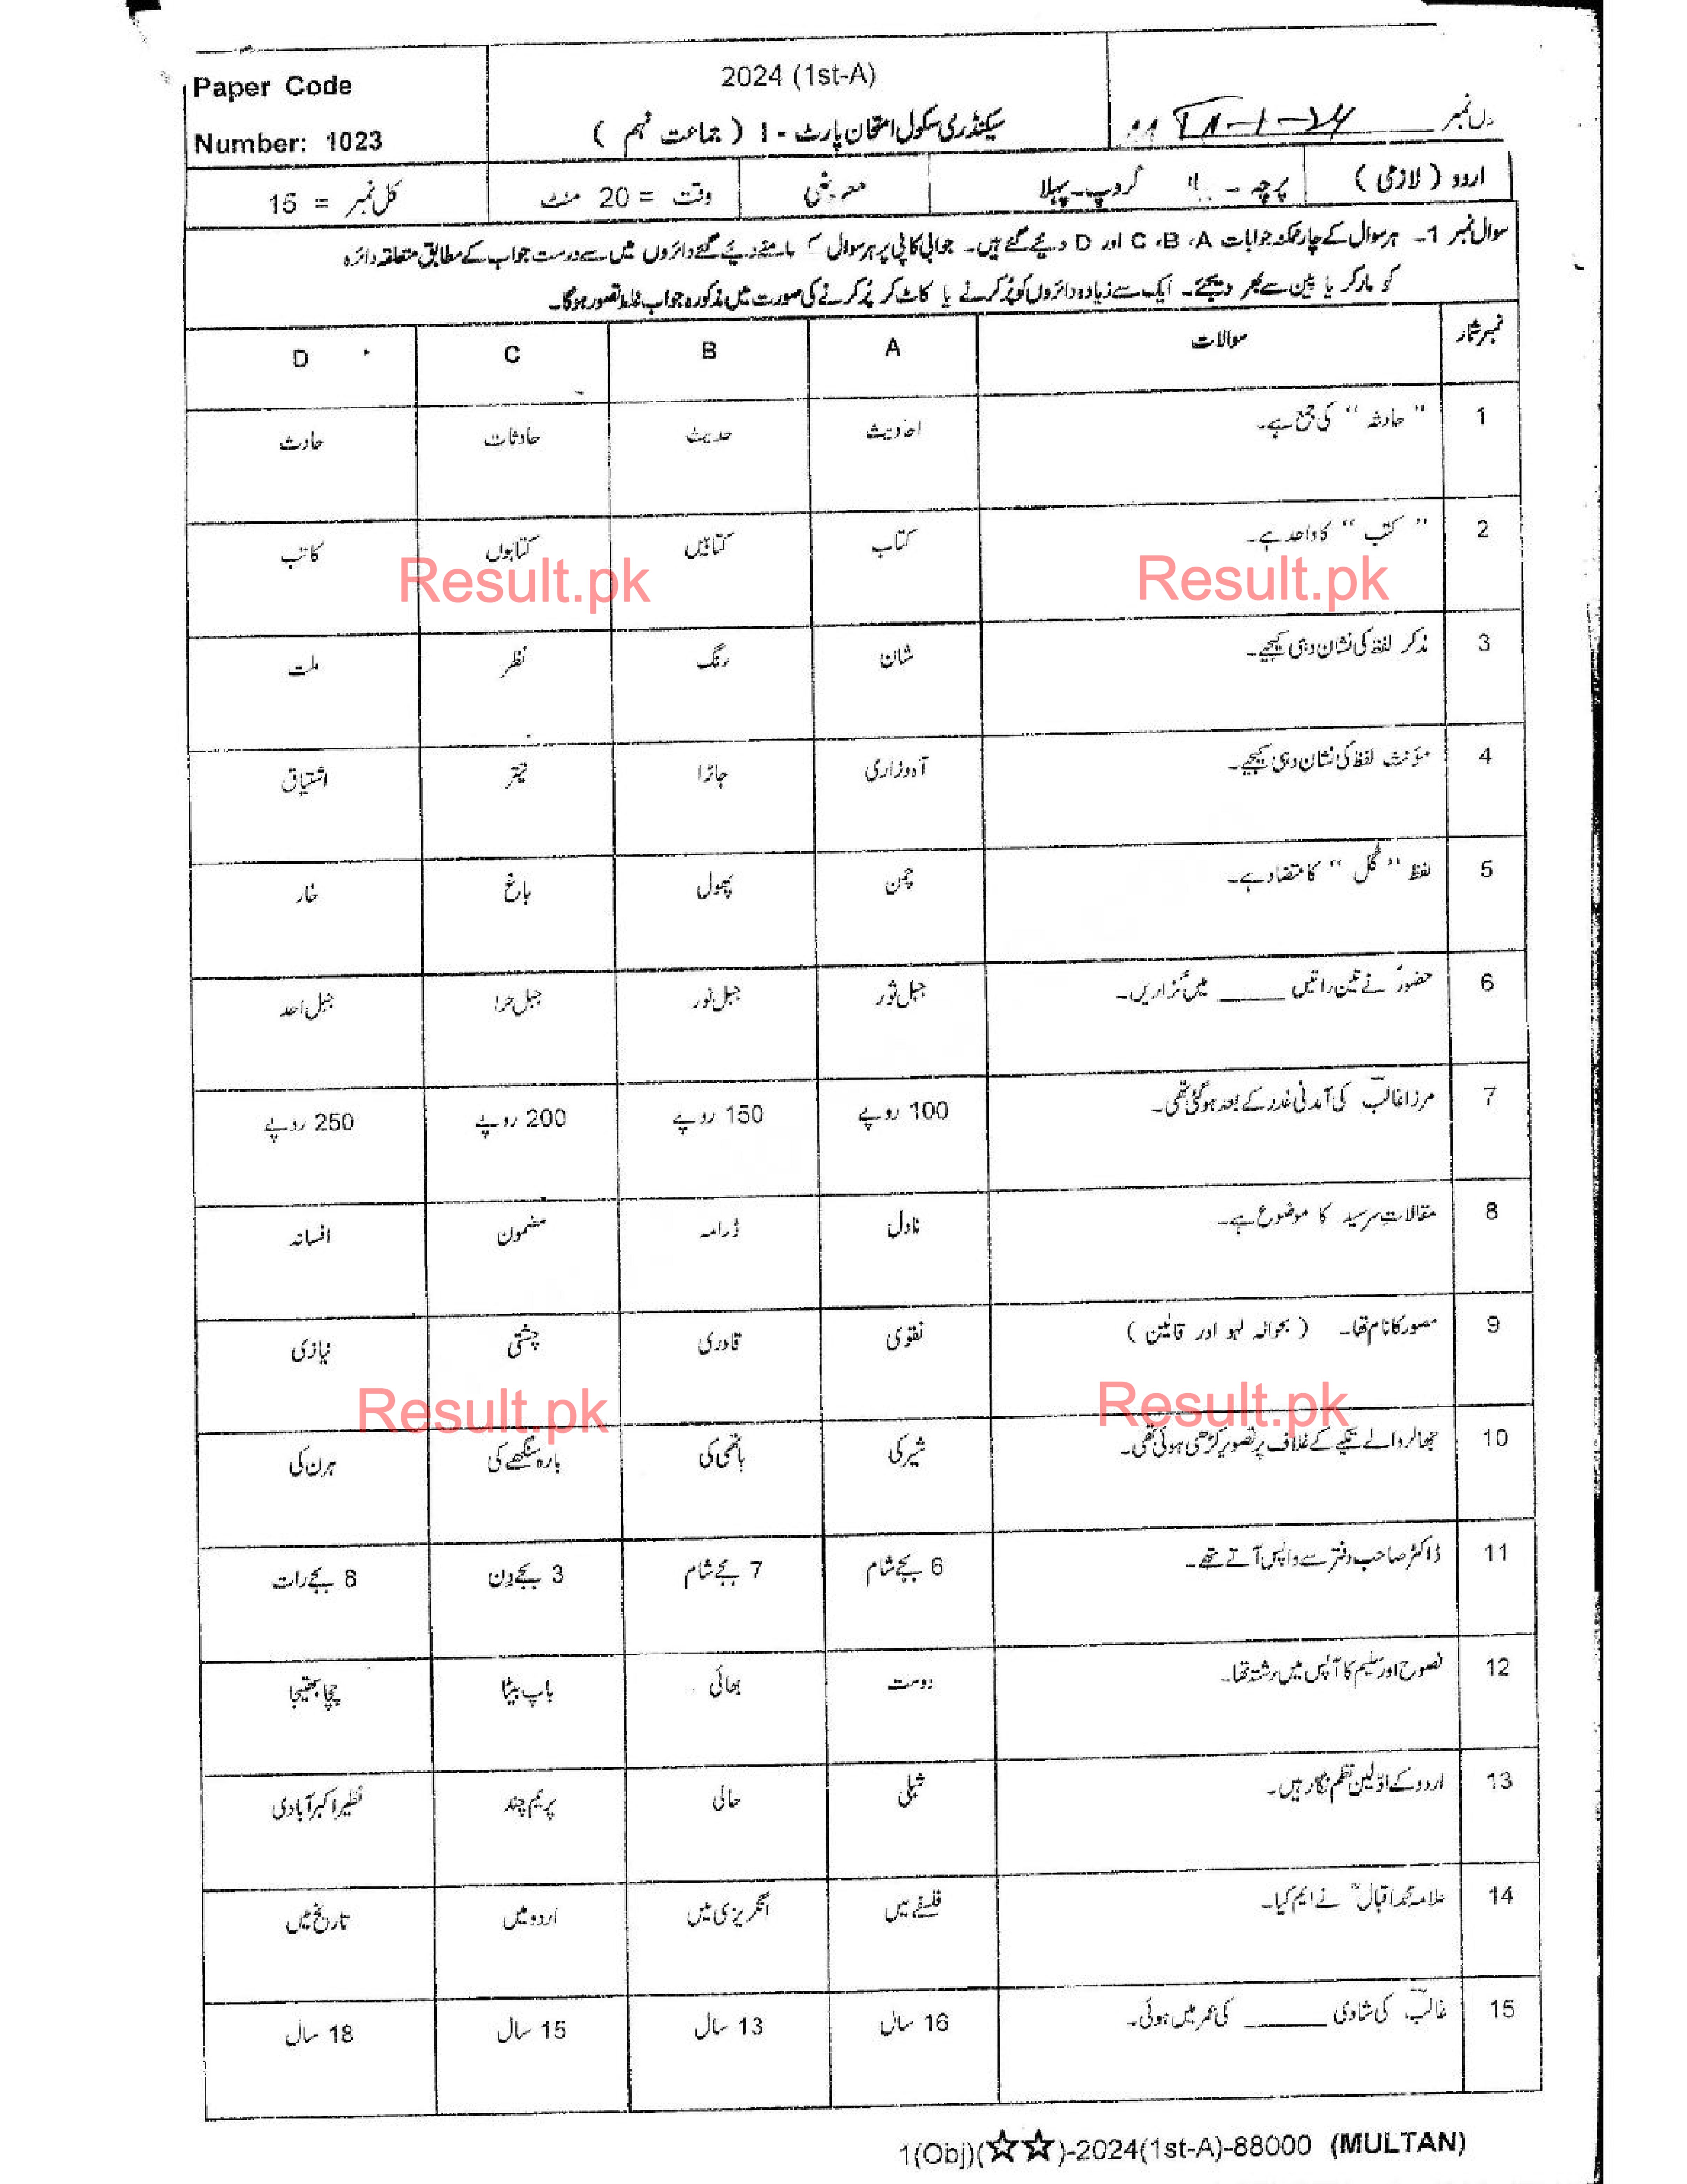 Paper Code
Number: 1023
2024 (1st-A)
سیکنڈری سکول امتحان پارٹ - I ( جماعت نہم )
رول نمبر
اردو ( لازمی ) پرچہ - گروپ۔پہلا معروضی وقت = 20 منٹ کل نمبر = 15
سوال نمبر 1۔ ہر سوال کے چار ممکنہ جوابات A ،B ،C اور D دیئے گئے ہیں۔ جوابی کاپی پر ہر سوال کے سامنے دیئے گئے دائروں میں سے درست جواب کے مطابق متعلقہ دائرہ
کو مارکر یا پین سے بھر دیجئے۔ ایک سے زیادہ دائروں کو پُر کرنے یا کاٹ کر پُر کرنے کی صورت میں مذکورہ جواب غلط تصور ہوگا۔
نمبر شمار سوالات A B C D
1 " حادثہ " کی جمع ہے۔ احادیث حدیث حادثات حادث
2 " کتب " کا واحد ہے۔ کتاب کتابیں کتابوں کاتب
Result.pk Result.pk
3 مذکر لفظ کی نشان دہی کیجیے۔ شان رنگ نظر ملت
4 مؤنث لفظ کی نشان دہی کیجیے۔ آہ وزاری جاڑا تیتر اشتیاق
5 لفظ " گُل " کا متضاد ہے۔ چمن پھول باغ خار
6 حضورؐ نے تین راتیں _____ میں گزاریں۔ جبل ثور جبل نور جبل حرا جبل احد
7 مرزا غالبؔ کی آمدنی غدر کے بعد ہو گئی تھی۔ 100 روپے 150 روپے 200 روپے 250 روپے
8 مقالات سرسید کا موضوع ہے۔ ناول ڈرامہ مضمون افسانہ
9 مصور کا نام تھا۔ ( بحوالہ لہو اور قالین ) نقوی قادری چشتی نیازی
Result.pk Result.pk
10 جھالر والے تکیے کے غلاف پر تصویر کڑھی ہوئی تھی۔ شیر کی ہاتھی کی بارہ سنگھے کی ہرن کی
11 ڈاکٹر صاحب دفتر سے واپس آتے تھے۔ 6 بجے شام 7 بجے شام 3 بجے دن 8 بجے رات
12 نصوح اور سلیم کا آپس میں رشتہ تھا۔ دوست بھائی باپ بیٹا چچا بھتیجا
13 اردو کے اوّلین نظم نگار ہیں۔ شبلی حالی پریم چند نظیر اکبر آبادی
14 علامہ محمد اقبالؒ نے ایم کیا۔ فلسفے میں انگریزی میں اردو میں تاریخ میں
15 غالبؔ کی شادی _____ کی عمر میں ہوئی۔ 16 سال 13 سال 15 سال 18 سال
1(Obj)(☆☆)-2024(1st-A)-88000 (MULTAN)